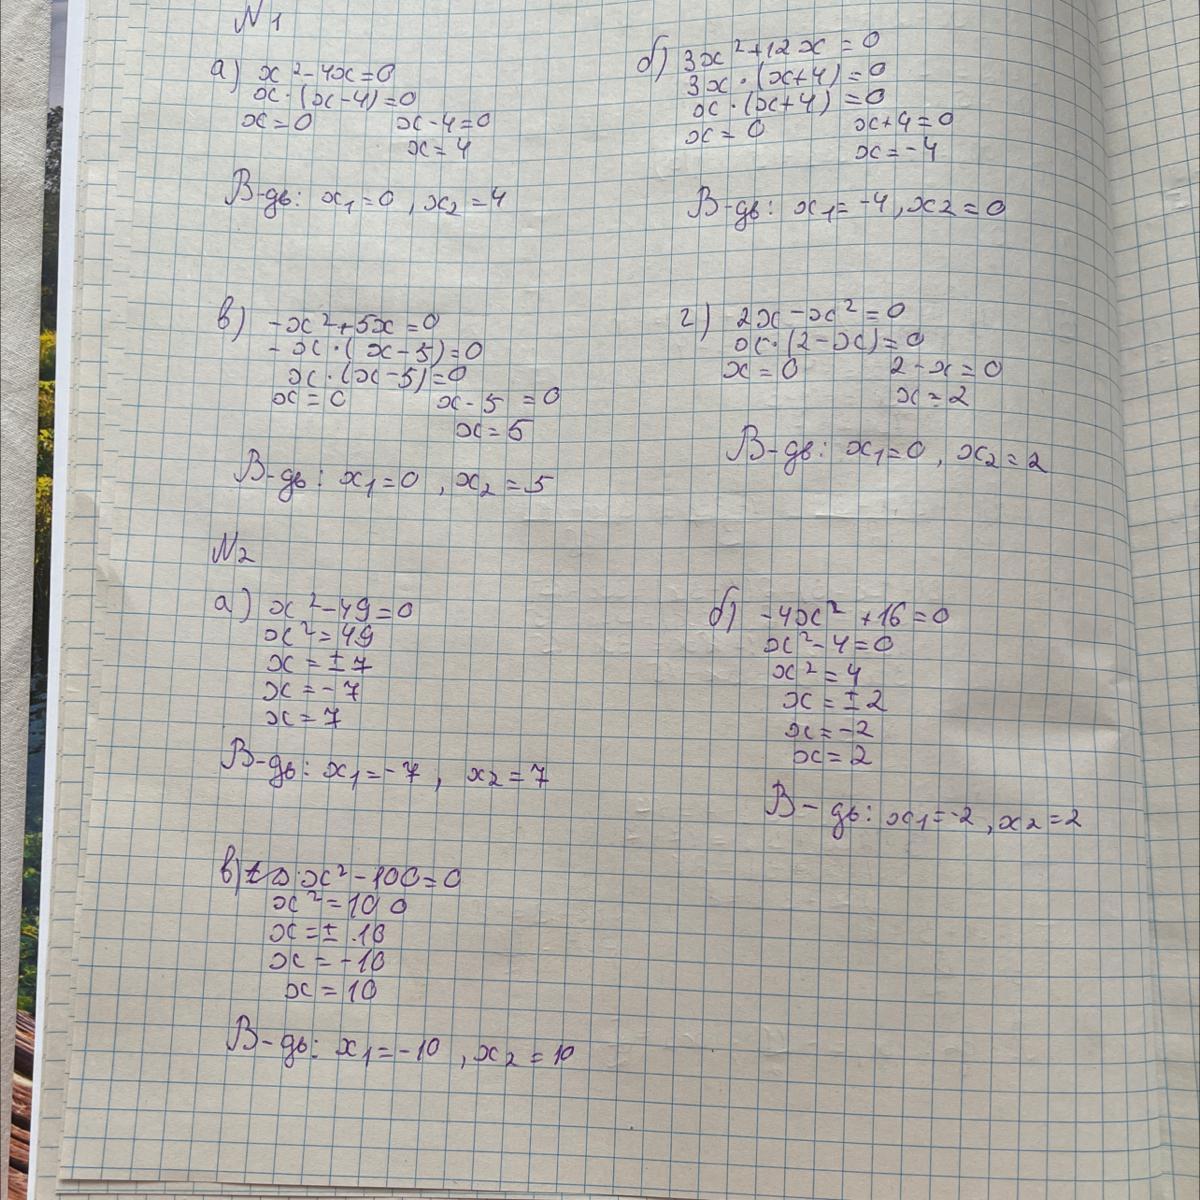 N1
а) x²-4x=0
x·(x-4)=0
x=0 x-4=0
x=4
В-дь: x₁=0, x₂=4
б) 3x²+12x=0
3x·(x+4)=0
x·(x+4)=0
x=0 x+4=0
x=-4
В-дь: x₁=-4, x₂=0
в) -x²+5x=0
-x·(x-5)=0
x·(x-5)=0
x=0 x-5=0
x=5
В-дь: x₁=0, x₂=5
г) 2x-x²=0
x·(2-x)=0
x=0 2-x=0
x=2
В-дь: x₁=0, x₂=2
N2
а) x²-49=0
x²=49
x=±7
x=-7
x=7
В-дь: x₁=-7, x₂=7
б) -4x²+16=0
x²-4=0
x²=4
x=±2
x=-2
x=2
В-дь: x₁=-2, x₂=2
в) x²-100=0
x²=100
x=±10
x=-10
x=10
В-дь: x₁=-10, x₂=10